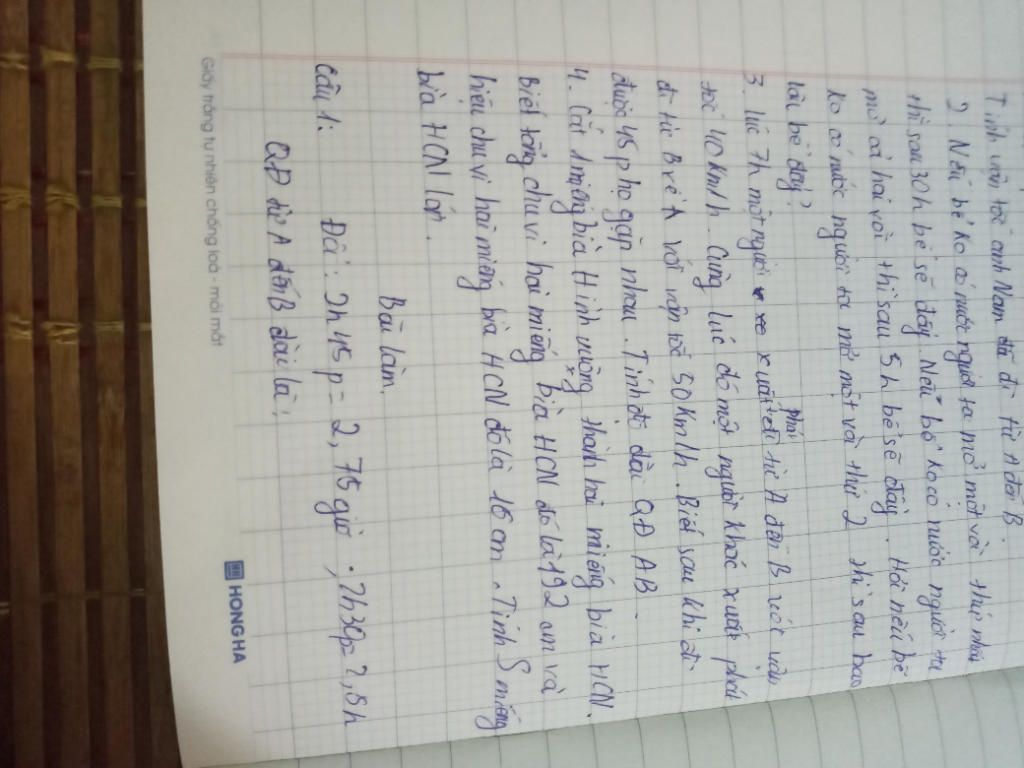 Tính vận tốc anh Nam đã đi từ A đến B
2. Nếu bể ko có nước người ta mở một vòi thứ nhất
thì sau 30h bể sẽ đầy. Nếu bể ko có nước người ta
mở cả hai vòi thì sau 5h bể sẽ đầy. Hỏi nếu bể
ko có nước người ta mở một vòi thứ 2 thì sau bao
lâu bể đầy?
3. lúc 7h một người xe xuất phát đi từ A đến B với vận
tốc 40km/h. Cùng lúc đó một người khác xuất phát
đi từ B về A với vận tốc 50km/h. Biết sau khi đi
được 45p họ gặp nhau. Tính độ dài QĐ AB.
4. Cắt 1 miếng bìa Hình vuông thành hai miếng bìa HCN.
Biết tổng chu vi hai miếng bìa HCN đó là 192 cm và
hiệu chu vi hai miếng bìa HCN đó là 16cm. Tính S miếng
bìa HCN lớn.
Bài làm
Câu 1: Đổi: 2h45p = 2,75giờ, 2h30p = 2,5h
QĐ từ A đến B dài là:
Giấy trắng tự nhiên chống loá - mỏi mắt
HONG HA